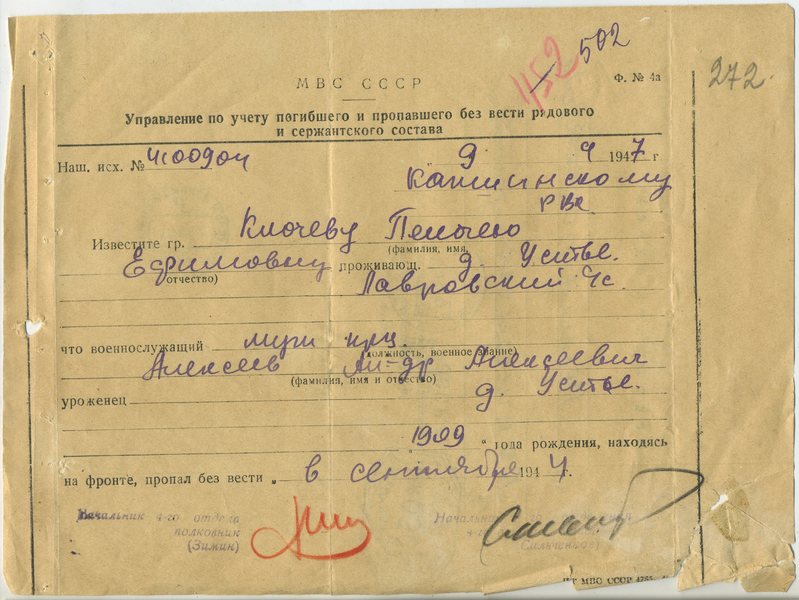 452 502
МВС СССР
Ф. № 4а
272.
Управление по учету погибшего и пропавшего без вести рядового
и сержантского состава
Наш. исх. № 9 9 1947 г
Кашинскому
РВК
Известите гр. Ключеву Пелагею
(фамилия, имя,
Ефимовну проживающ. д. Устье.
отчество)
Лавровский с/с.
что военнослужащий муж кр-ц.
(должность, военное звание)
Алексеев Ал-др Алексеевич
(фамилия, имя и отчество)
уроженец д. Устье.
"1909" года рождения, находясь
на фронте, пропал без вести „ в сентябре 194 г.
Начальник 4-го отдела
полковник
(Зимин)
Начальник